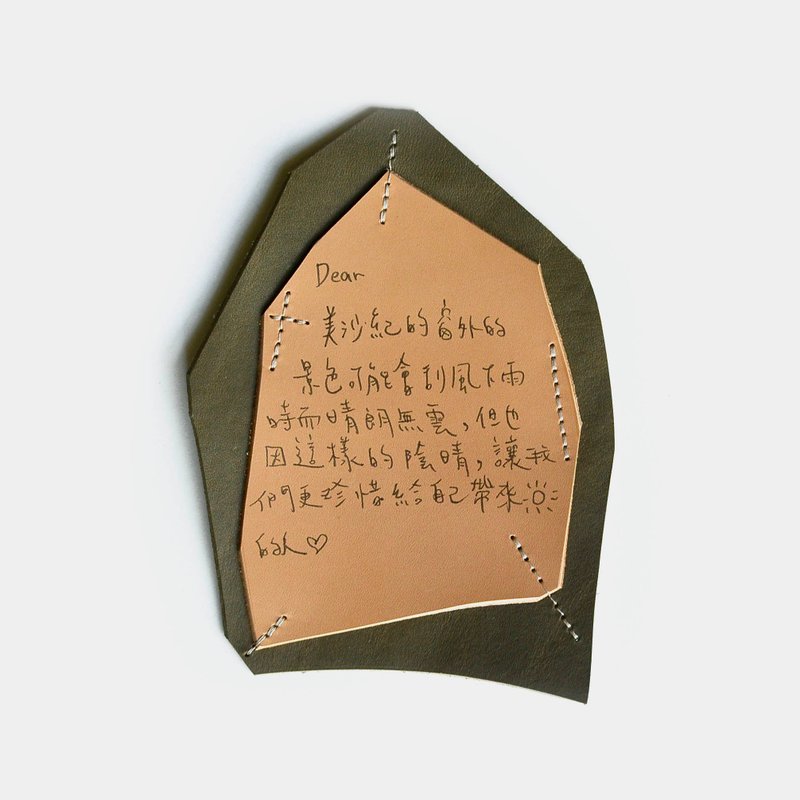 Dear
美沙紀的窗外的
景色可能會刮風下雨
時而晴朗無雲，但也
因這樣的陰晴，讓我
們更珍惜給自己帶來☀
的人♡